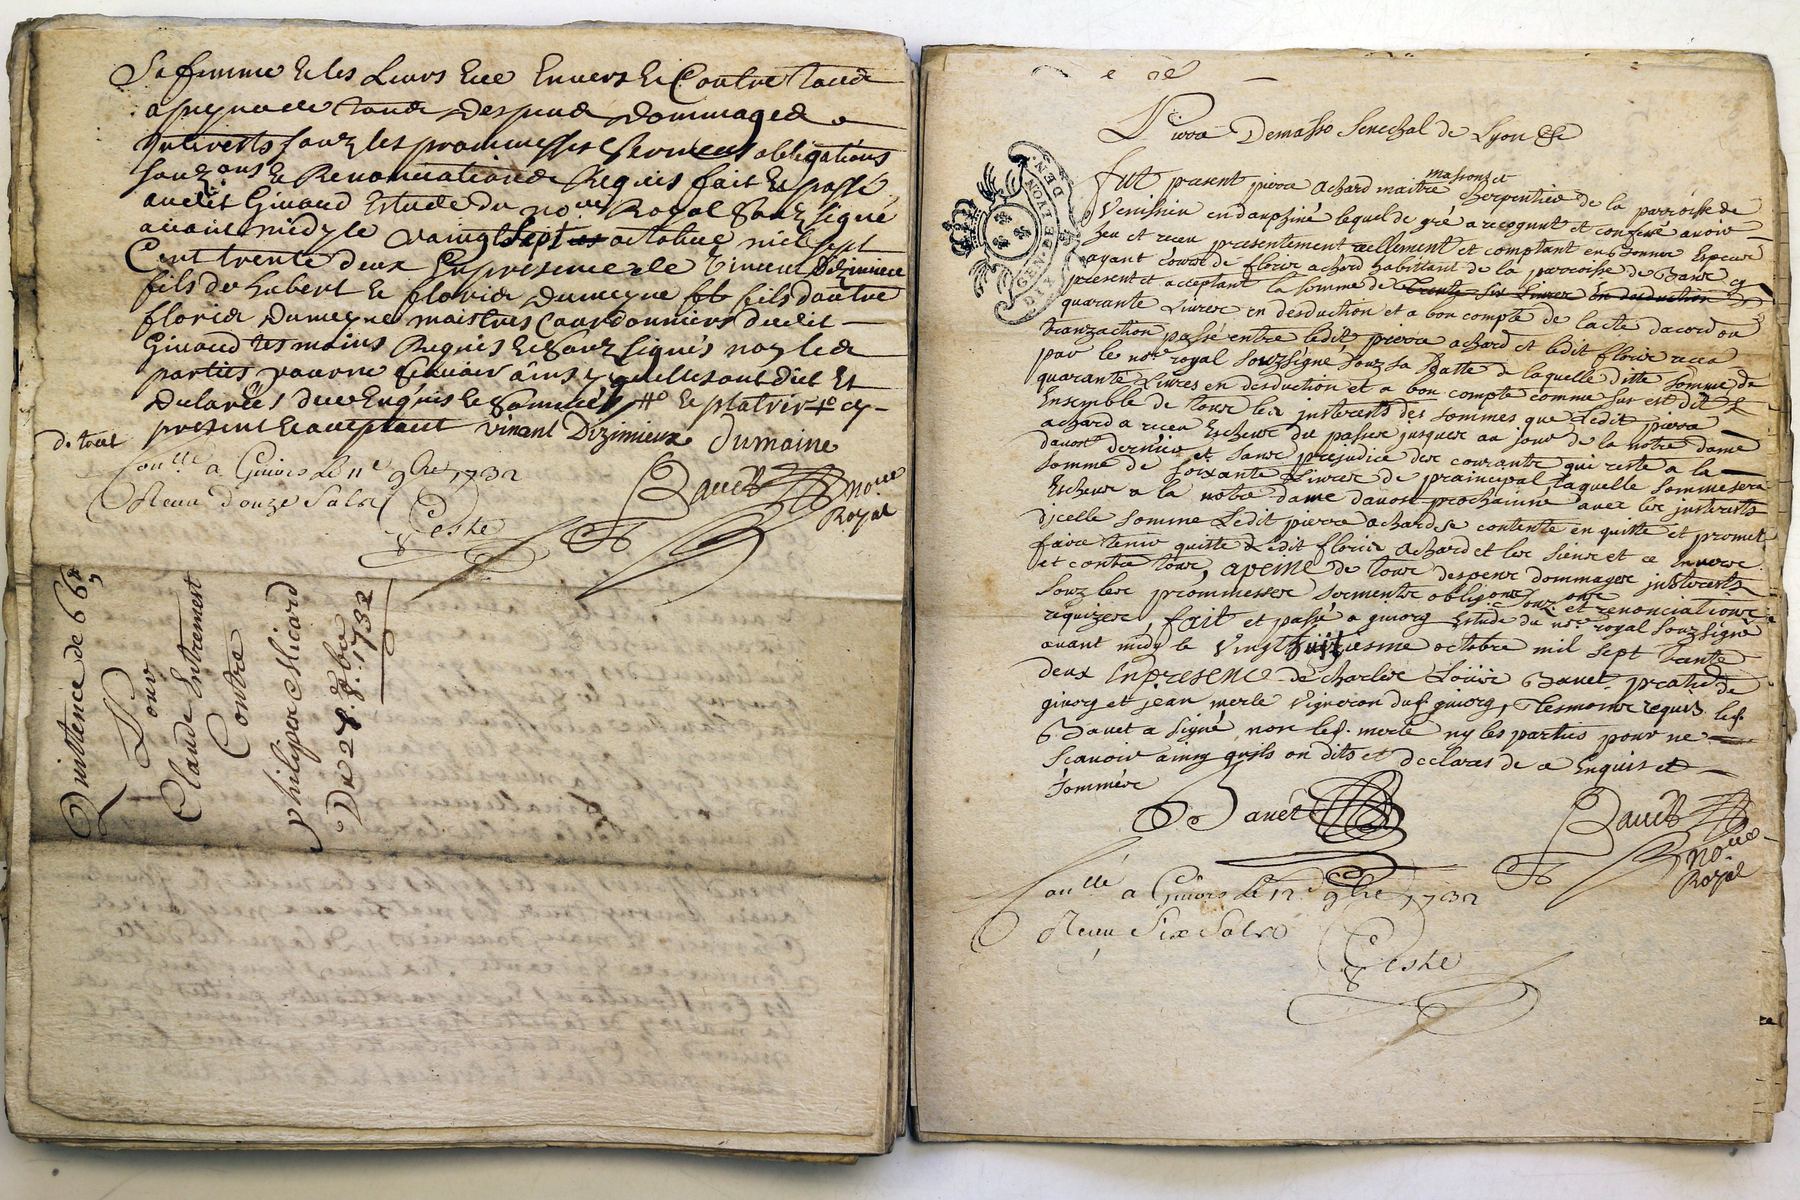 Sa femme & les Leurs Et ce Envers Et Contre tous
a peyne de tous Despens Dommages
Interests souz les prommesses sermens obligations
souz ons & Renonciations Requis fait Et passé
audit Givord Estude du no.re Royal Souz signé
avant midy le vaingt sept octobre mil sept
Cent trente deux En presence de Vincent Dizimieux
fils de hubert & florid Dumeyne fils d'autre
florid Dumeyne maistres Courdonniers dudit
Givord tesmoins Requis & Souz signés non les
parties pour ne scavoir ainsy quelles ont dict Et
Declarées de ce Enquis &
present & acceptant vincent Dizimieux Dumaine
de tout
Con.llé a Givors le 11e 9bre 1732
Receu Douze Sols
Bauet no.re
Royal
Teste
Quittence de 66 #
Pour
Claude Entremont
Contre
philipe Sicard
Du 27. 8.bre 1732
Pierre Demasso Senechal de Lyon &c
massons et
fut present pierre Achard maitre cherpentier de la parroisse de
Venissieu en dauphiné lequel de gré a recognut et confessé avoir
heu et receu presentement reellement et comptant en bonne Espece
ayant cours de florie achard habittant de la parroisse de
present et acceptant la somme de trente six Livres en deduction
quarante Livres en desduction et a bon compte de lacte dacord ou
tranzaction passé entre ledit pierre achard et ledit florie
par le no.re royal souzsigne souz sa datte de laquelle ditte somme de
quarante Livres en desduction et a bon compte comme sus est dit
Ensemble de tous les justerests des sommes que Ledit pierre
achard a receu Escheue du passer jusques au jour de la notre dame
daoust dernier et sans prejudice des courants qui reste a la
somme de soixante Livres de praincipal laquelle somme sera
Escheue a la notre dame daoust prochainne avec les justerests
dicelle somme Ledit pierre achard se contente en quitte et promet
faire tenir quitte Ledit florie Achard et les siens et ce Envers
et contre tous, apeine de tous despens dommages justerests
souz les prommesses sermentz obligons souz ons et renonciations
requizes, fait et passé a givorg Estude du no.re royal souzsigné
avant midy le Vingthuitiesme octobre mil sept trente
deux Enpresence de charles Louis Bauet praticien de
givorg et jean merle vigneron dud. givorg, Tesmoins requis led.
Bauet a signé non led. merle ny les parties pour ne
scavoir ainsy quils on dits et declarés de ce Enquis et
sommére
Bauet
Bauet
no.re
Royal
Con.llé a Givors le 12e 9bre 1732
Receu Six Sols
Teste
GENER. DE LYON
DIX DEN.